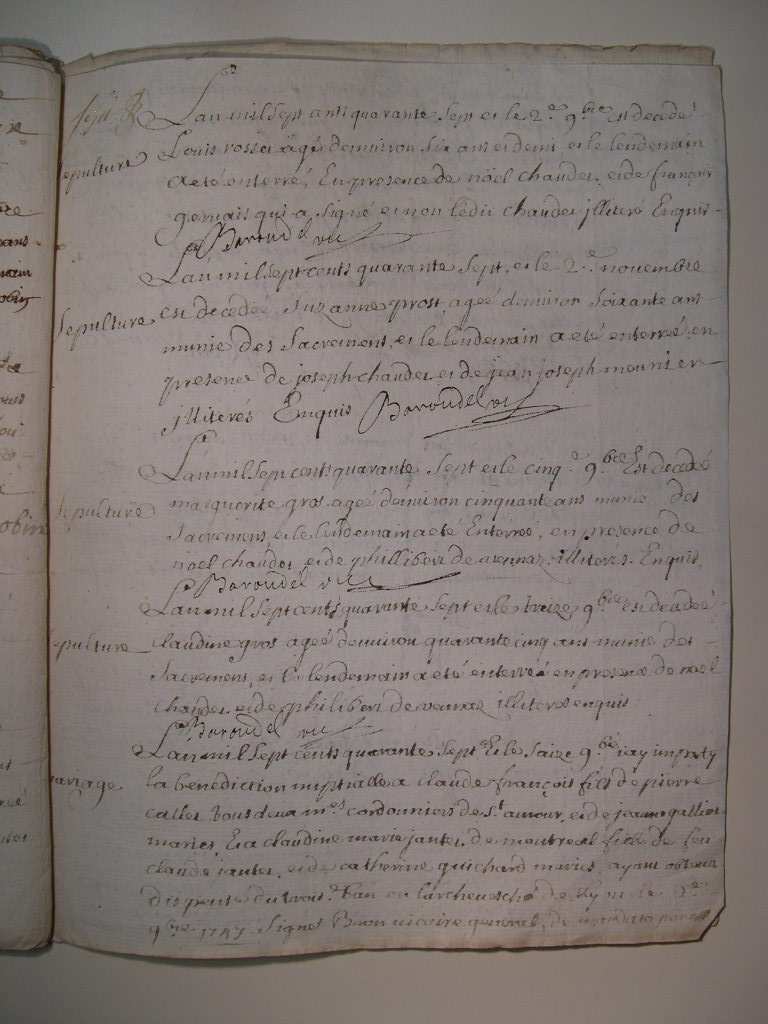 L'an mil sept cents quarante sept et le 2.e 9.bre Est decedé
sepulture Louis rosset agé denviron six ans et demi et le lendemain
a eté enterré, En presence de nöel chaudet et de françois
gervais qui a signé et non ledit chaudet illiteré Enquis
Baroudel vic
L'an mil sept cents quarante sept, et le 2.e novembre
sepulture est decedeé suzanne prost ageé denviron soixante ans
munie des sacremens, et le lendemain a eté enterreé en
presence de joseph chaudet et de jean joseph
illiterés Enquis Baroudel vic
L'an mil sept cents quarante sept et le cinq.e 9.bre Est decedé
sepulture marguerite gros ageé denviron cinquante ans munie des
sacremens, et le lendemain a eté Enterreé, en presence de
nöel chaudet et de phillibert de illiterés. Enquis
Baroudel vic
L'an mil sept cents quarante sept et le treize 9.bre est decedeé
sepulture claudine gros ageé denviron quarante cinq ans munie des
sacremens, et le lendemain a eté enterreé en presence de nöel
chaudet et de philibert de illiterés enquis
Baroudel vic
L'an mil sept cents quarante sept et le saize 9.bre j'ay imparty
mariage la benediction nuptialle a claude françois fils de pierre
callet tous deux m.es cordonniers de S.t amour, et de jeanne galliot
mariés, Et a claudine marie jantet, de montreal fille de feu
claude jantet, et de catherine guichard mariés, ayant obtenu
dispense du trois.e ban en l'archevesché de Lyon le 9.e
9.bre 1747. Signés vicaire general, de mandato